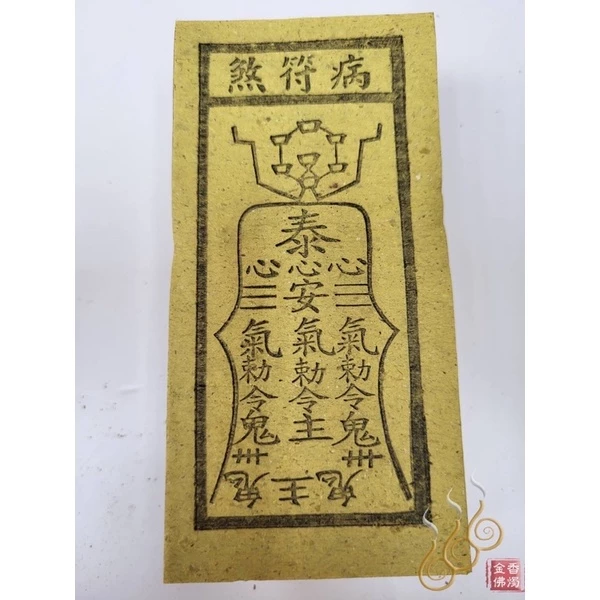 病符煞
泰
心三氣勅令鬼卅
心安氣勅令主
心三氣勅令鬼卅
鬼主鬼
金佛
香燭